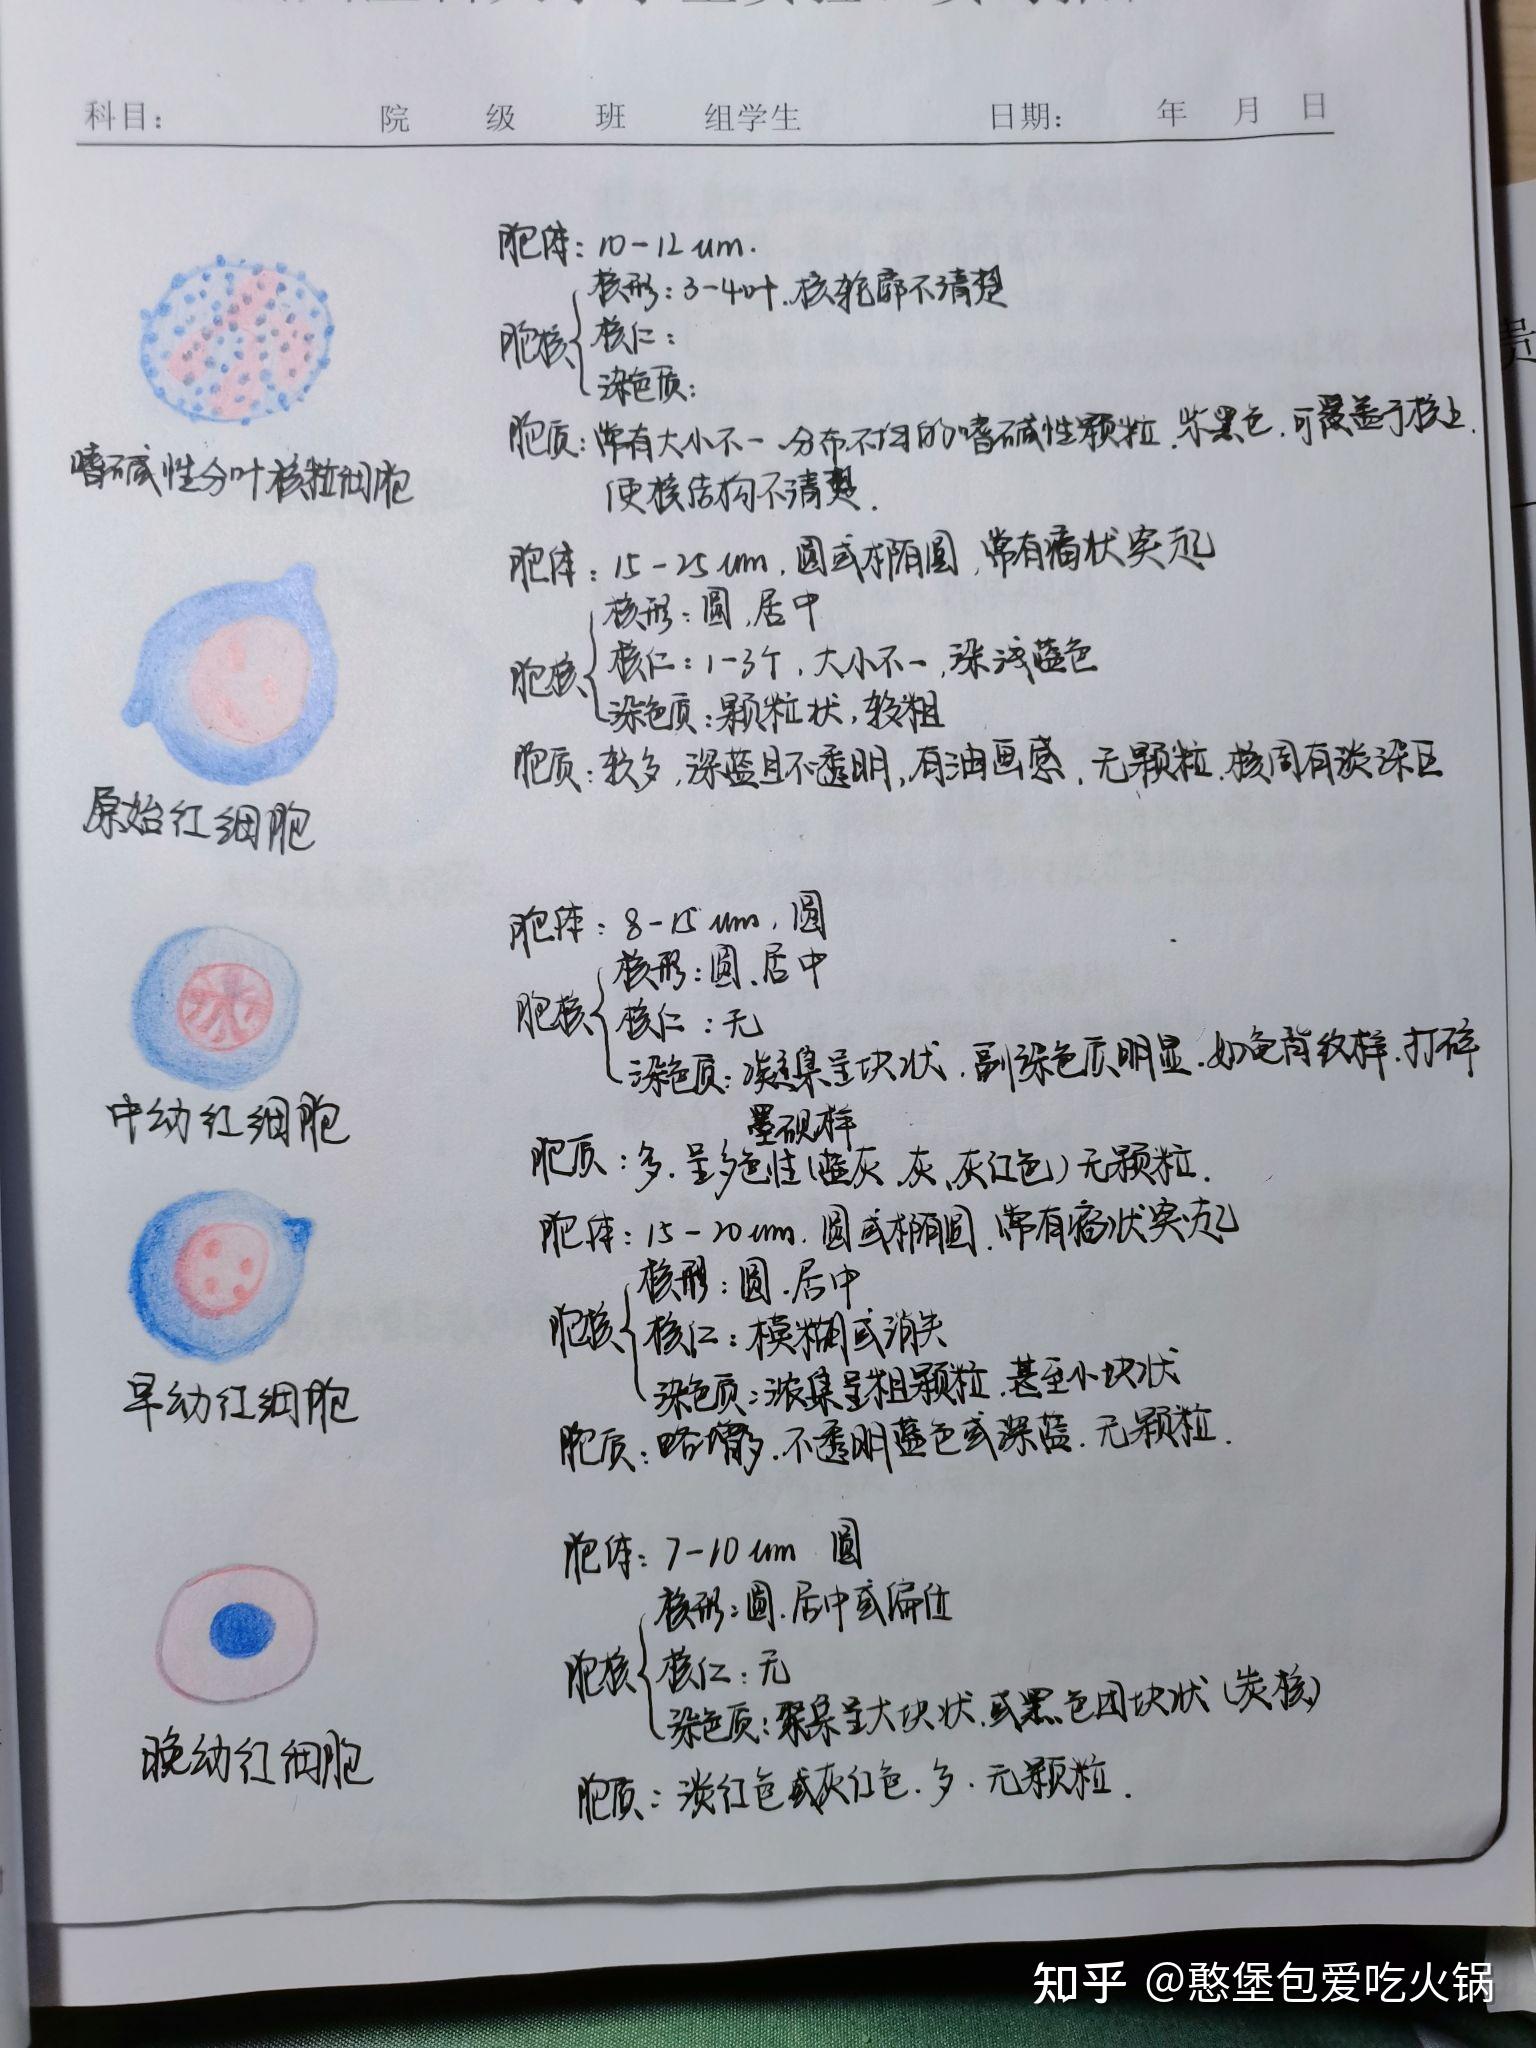 科目： 院 级 班 组学生 日期： 年 月 日
胞体：10-12um.
核形：3-4叶.核轮廓不清楚
胞核 核仁：
染色质：
胞质：常有大小不一.分布不均的嗜碱性颗粒.紫黑色.可覆盖于核上.
使核结构不清楚.
嗜碱性分叶核粒细胞
胞体：15-25um.圆或椭圆,常有瘤状突起
核形：圆,居中
胞核 核仁：1-3个,大小不一,染浅蓝色
染色质：颗粒状,较粗
胞质：较多,深蓝且不透明,有油画感.无颗粒.核周有淡染区
原始红细胞
胞体：8-15um.圆
核形：圆.居中
胞核 核仁：无
染色质：凝集呈块状.副染色质明显.如龟背纹样.打碎
墨砚样
胞质：多.呈多色性(蓝灰、灰、灰红色)无颗粒.
中幼红细胞
胞体：15-20um.圆或椭圆.常有瘤状突起
核形：圆.居中
胞核 核仁：模糊或消失
染色质：浓集呈粗颗粒.甚至小块状
胞质：略增多.不透明蓝色或深蓝.无颗粒.
早幼红细胞
胞体：7-10um 圆
核形：圆.居中或偏位
胞核 核仁：无
染色质：聚集呈大块状.或黑色团块状(炭核)
胞质：淡红色或灰红色.多.无颗粒.
晚幼红细胞
知乎 @憨堡包爱吃火锅